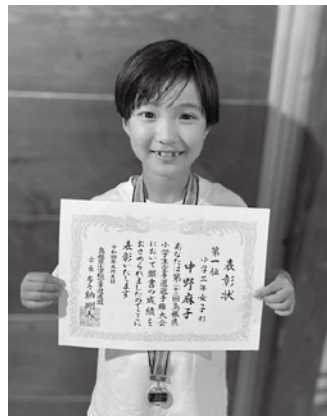 表彰状
第一位
小学三年女子形
中野麻子
あなたは第二十一回島根県
小学生空手道選手権大会
において頭書の成績を
おさめられましたのでここに
表彰いたします
令和四年五月
島根県空手道連盟
会長